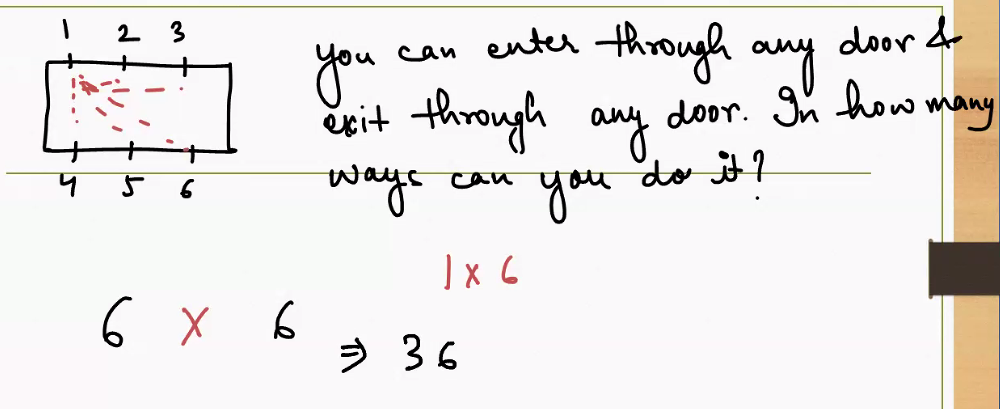 1 2 3
4 5 6
you can enter through any door &
exit through any door. In how many
ways can you do it?
1 x 6
6 x 6 ⇒ 36